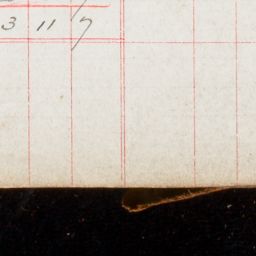 3 11 7